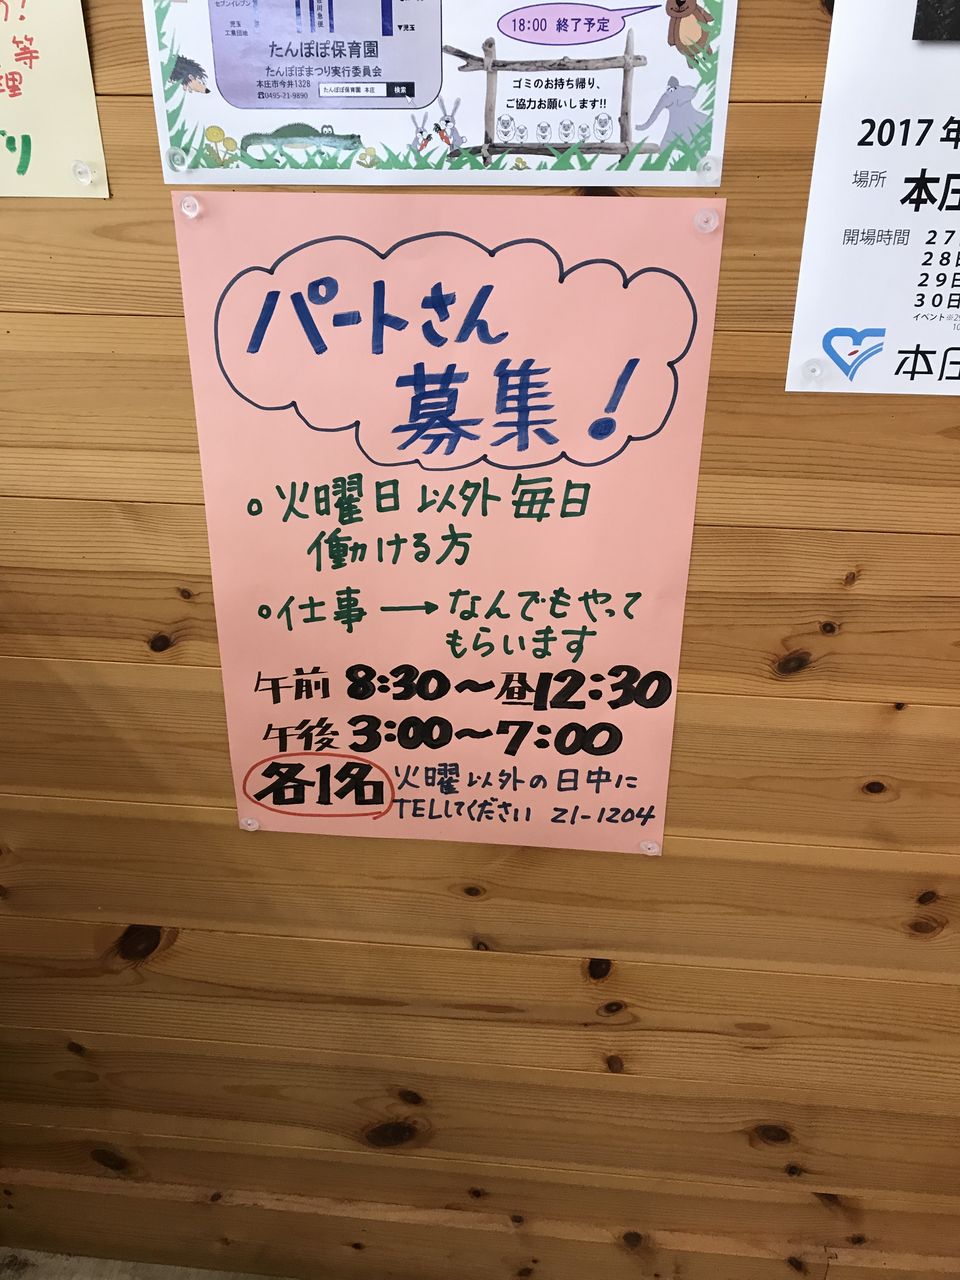 等
理
セブンイレブン
児玉
工業団地
▼児玉
たんぽぽ保育園
たんぽぽまつり実行委員会
本庄市今井1328
☎0495-21-9890
たんぽぽ保育園 本庄 検索
18:00 終了予定
ゴミのお持ち帰り、
ご協力お願いします!!
パートさん
募集!
○火曜日以外毎日
働ける方
○仕事→なんでもやって
もらいます
午前 8:30~昼12:30
午後 3:00~7:00
各1名
火曜以外の日中に
TELしてください 21-1204
2017年
場所 本庄
開場時間 27
28日
29日
30日
イベント※29
10
本庄